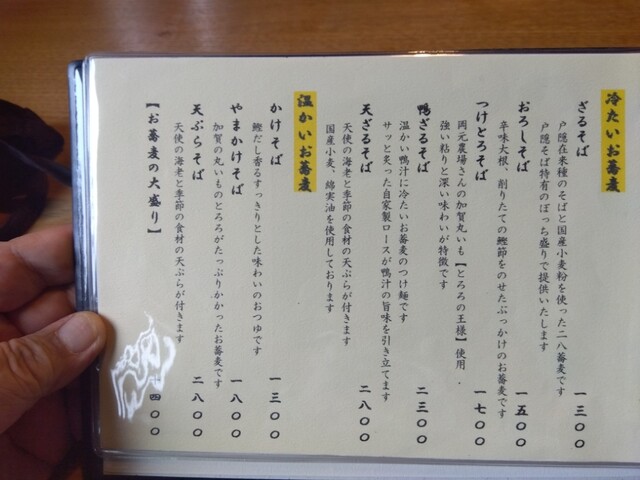 冷たいお蕎麦
ざるそば 一三〇〇
戸隠在来種のそばと国産小麦粉を使った二八蕎麦です
戸隠そば特有のぼっち盛りで提供いたします
おろしそば 一五〇〇
辛味大根、削りたての鰹節をのせたぶっかけのお蕎麦です
つけとろそば 一七〇〇
岡元農場さんの加賀丸いも【とろろの王様】使用.
強い粘りと深い味わいが特徴です
鴨ざるそば 二三〇〇
温かい鴨汁に冷たいお蕎麦のつけ麺です
サッと炙った自家製ロースが鴨汁の旨味を引き立てます
天ざるそば 二八〇〇
天使の海老と季節の食材の天ぷらが付きます
国産小麦、綿実油を使用しております
温かいお蕎麦
かけそば 一三〇〇
鰹だし香るすっきりとした味わいのおつゆです
やまかけそば 一八〇〇
加賀の丸いものとろろがたっぷりかかったお蕎麦です
天ぷらそば 二八〇〇
天使の海老と季節の食材の天ぷらが付きます
【お蕎麦の大盛り】 四〇〇